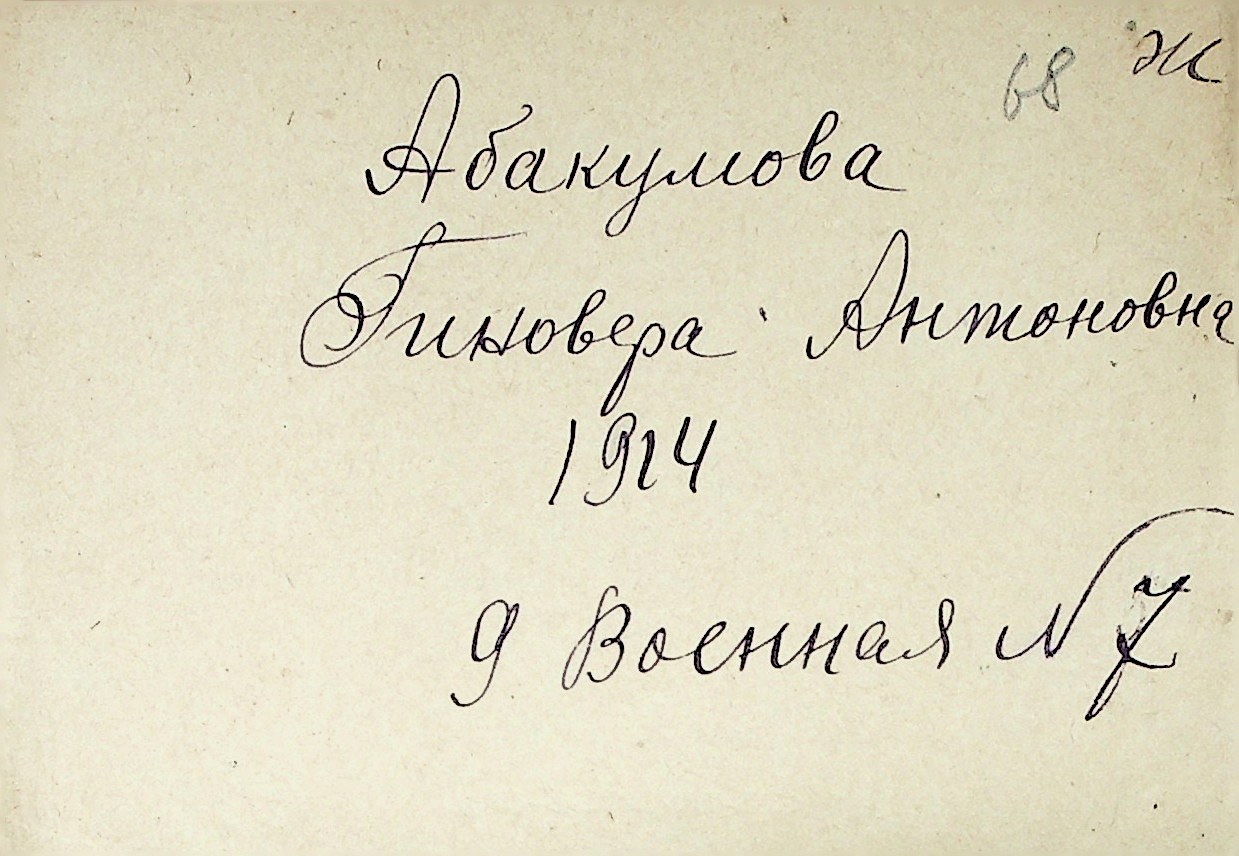 68 Ж
Абакумова
Гиновера Антоновна
1914
9 Военная N 7